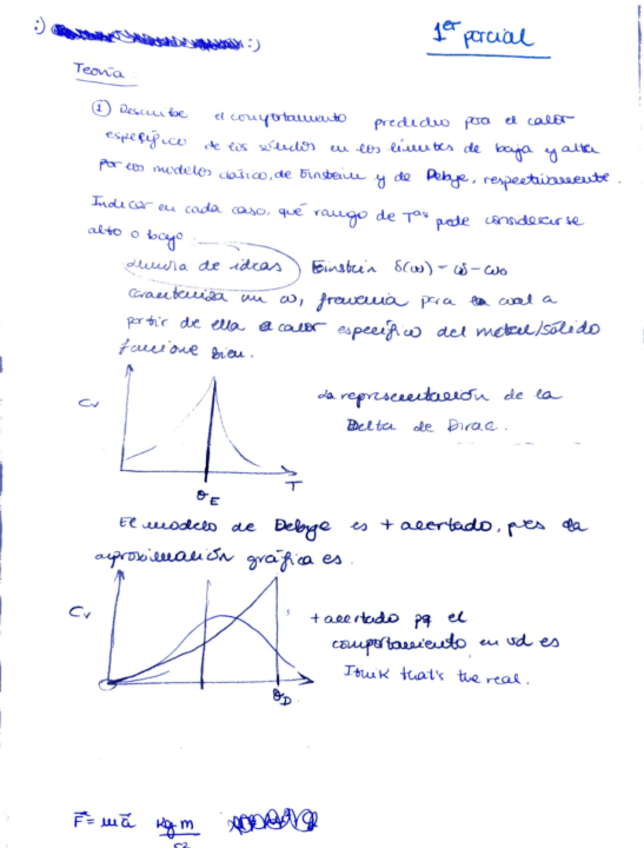 :) :)
1er parcial
Teoría
① Describe el comportamiento predicho para el calor
específico de los sólidos en los límites de baja y alta
por los modelos clásico, de Einstein y de Debye, respectivamente.
Indicar en cada caso, qué rango de Tas puede considerarse
alto o bajo.
lluvia de ideas Einstein δ(ω) - ω - ω0
caracteriza un ω, frecuencia para la cual a
partir de ella el calor específico del metal/sólido
funcione bien.
Cv
la representación de la
Delta de Dirac.
T
θE
El modelo de Debye es + acertado, pues la
aproximación gráfica es.
Cv
+ acertado pq el
comportamiento en vd es
I think that's the real.
θD
F⃗ = ma⃗ kg m
s2